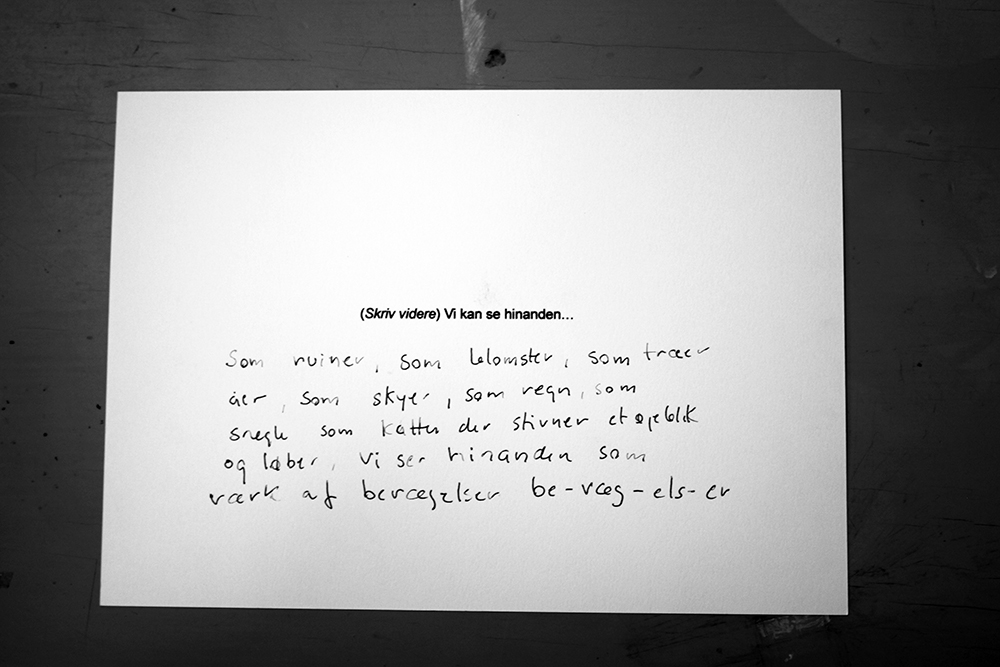 (Skriv videre) Vi kan se hinanden...
Som ruiner, som blomster, som træer
åer, som skyer, som regn, som
snegle som katte der stivner et øjeblik
og løber, vi ser hinanden som
værk af bevægelser be-væg-els-er